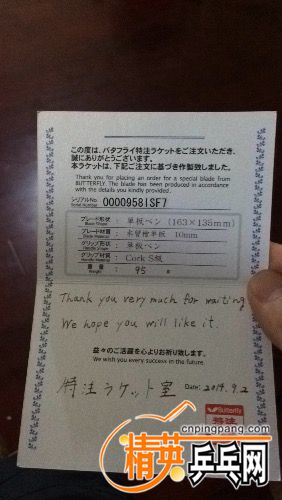 この度は、バタフライ特注ラケットをご注文いただき、
誠にありがとうございます。
本ラケットは、下記ご注文に基づき作製致しました。
Thank you for placing an order for a special blade from
BUTTERFLY. The blade has been produced in accordance
with the details you kindly provided.
シリアルNo.
Serial Number
0000958ISF7
ブレード形状
Blade Shape
: 単板ペン (163×135mm)
ブレード材質
Blade Material
: 木曽檜単板 10mm
グリップ形状
Handle Shape
: 単板ペン
グリップ材質
Handle Material
: Cork S級
重量
Weight
: 95 g
Thank you very much for waiting
We hope you will like it.
益々のご活躍を心よりお祈り致します。
We wish you every success in the future.
特注ラケット室
Date: 2014.9.2
Butterfly
特注
cnpingpang.com
精英乒乓网